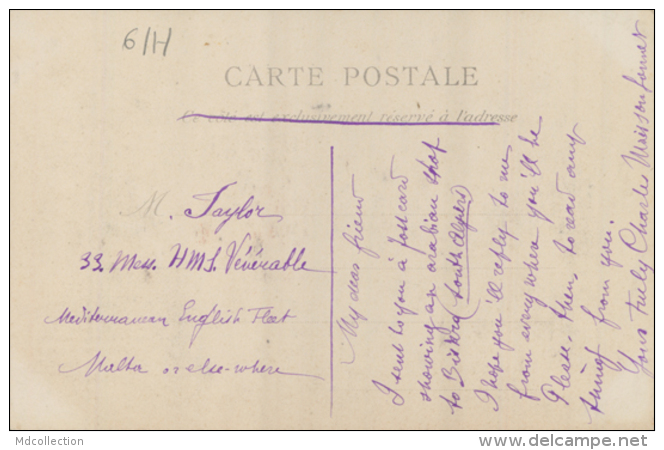 6/H
CARTE POSTALE
Ce côté est exclusivement réservé à l'adresse
M. Taylor
33. Mess. HMS. Vénérable
Mediterranean English Fleet
Malta or else-where
My dear friend
I sent to you à Postcard
showing an arabian shop
to Biskra (South Algers)
I hope you'll reply to me
from every where you'll be
Please, then, to read any
thing from you.
Yours truly Charles Maisonfonnet
Mdcollection
delcampe.net